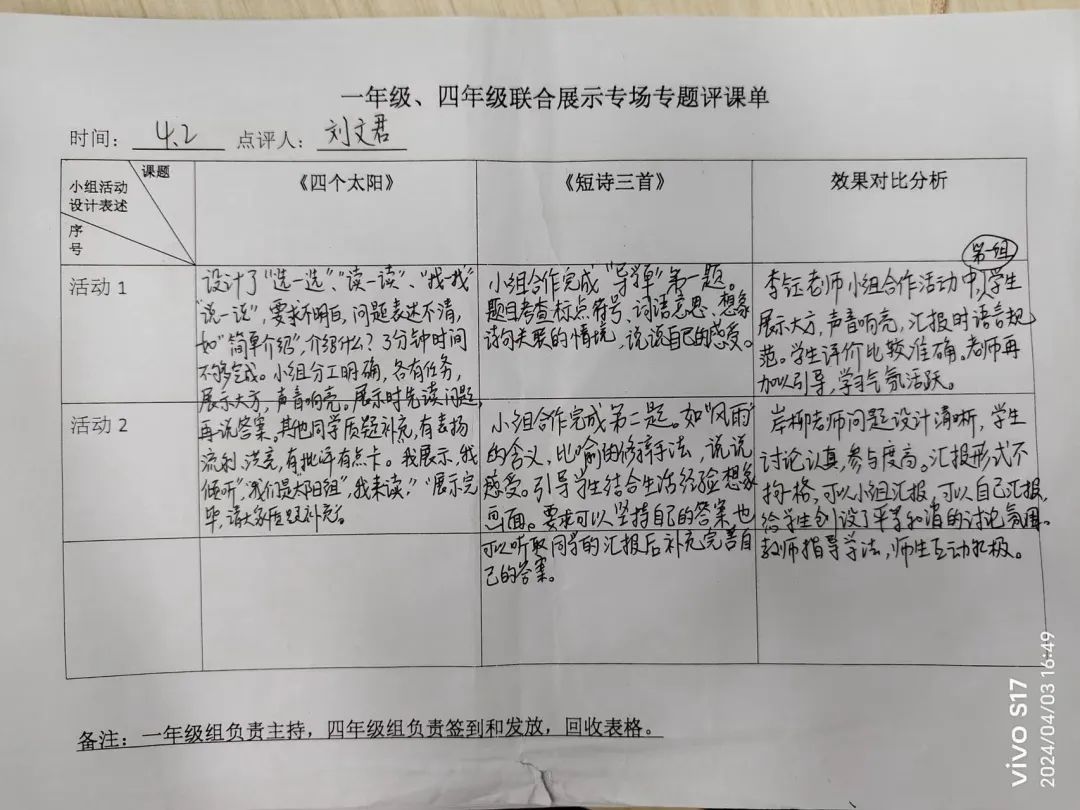 一年级、四年级联合展示专场专题评课单
时间：4.2 点评人：刘文君
课题
小组活动
设计表述
序
号
《四个太阳》
《短诗三首》
效果对比分析
活动1
设计了“选一选”、“读一读”、“找一找”
“说一说”，要求不明白，问题表述不清，
如“简单介绍”，介绍什么？3分钟时间
不够完成。小组分工明确，各有任务，
展示大方，声音响亮。展示时先读问题，
再说答案。其他同学质疑补充，有表扬
流利、洪亮，有批评有点卡。我展示，我
倾听”，“我们是太阳组”，我来读，”“展示完
毕，请大家质疑补充。
小组合作完成“导学单”第一题。
题目考查标点符号、词语意思、想象
诗句关联的情境，说说自己的感受。
第一组
李钰老师小组合作活动中，学生
展示大方，声音响亮，汇报时语言规
范。学生评价比较准确。老师再
加以引导，学习气氛活跃。
活动2
小组合作完成第二题。如“风雨”
的含义，比喻的修辞手法，说说
感受。引导学生结合生活经验想象
画面。要求可以坚持自己的答案也
可以听取同学的汇报后补充完善自
己的答案。
岸柳老师问题设计清晰，学生
讨论认真，参与度高。汇报形式不
拘一格，可以小组汇报，可以自己汇报，
给学生创设了平等和谐的讨论氛围。
教师指导学法，师生互动积极。
备注：一年级组负责主持，四年级组负责签到和发放，回收表格。
vivo S17
2024/04/03 16:49